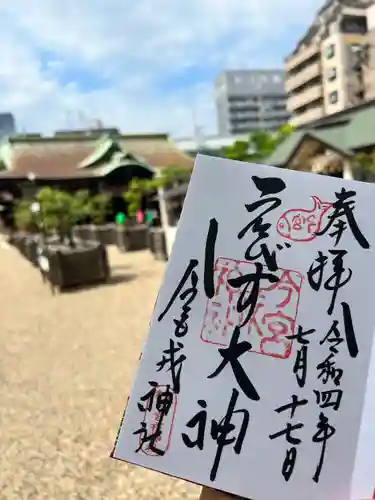 奉拝
令和四年
七月十七日
ゑびす大神
今宮戎神社